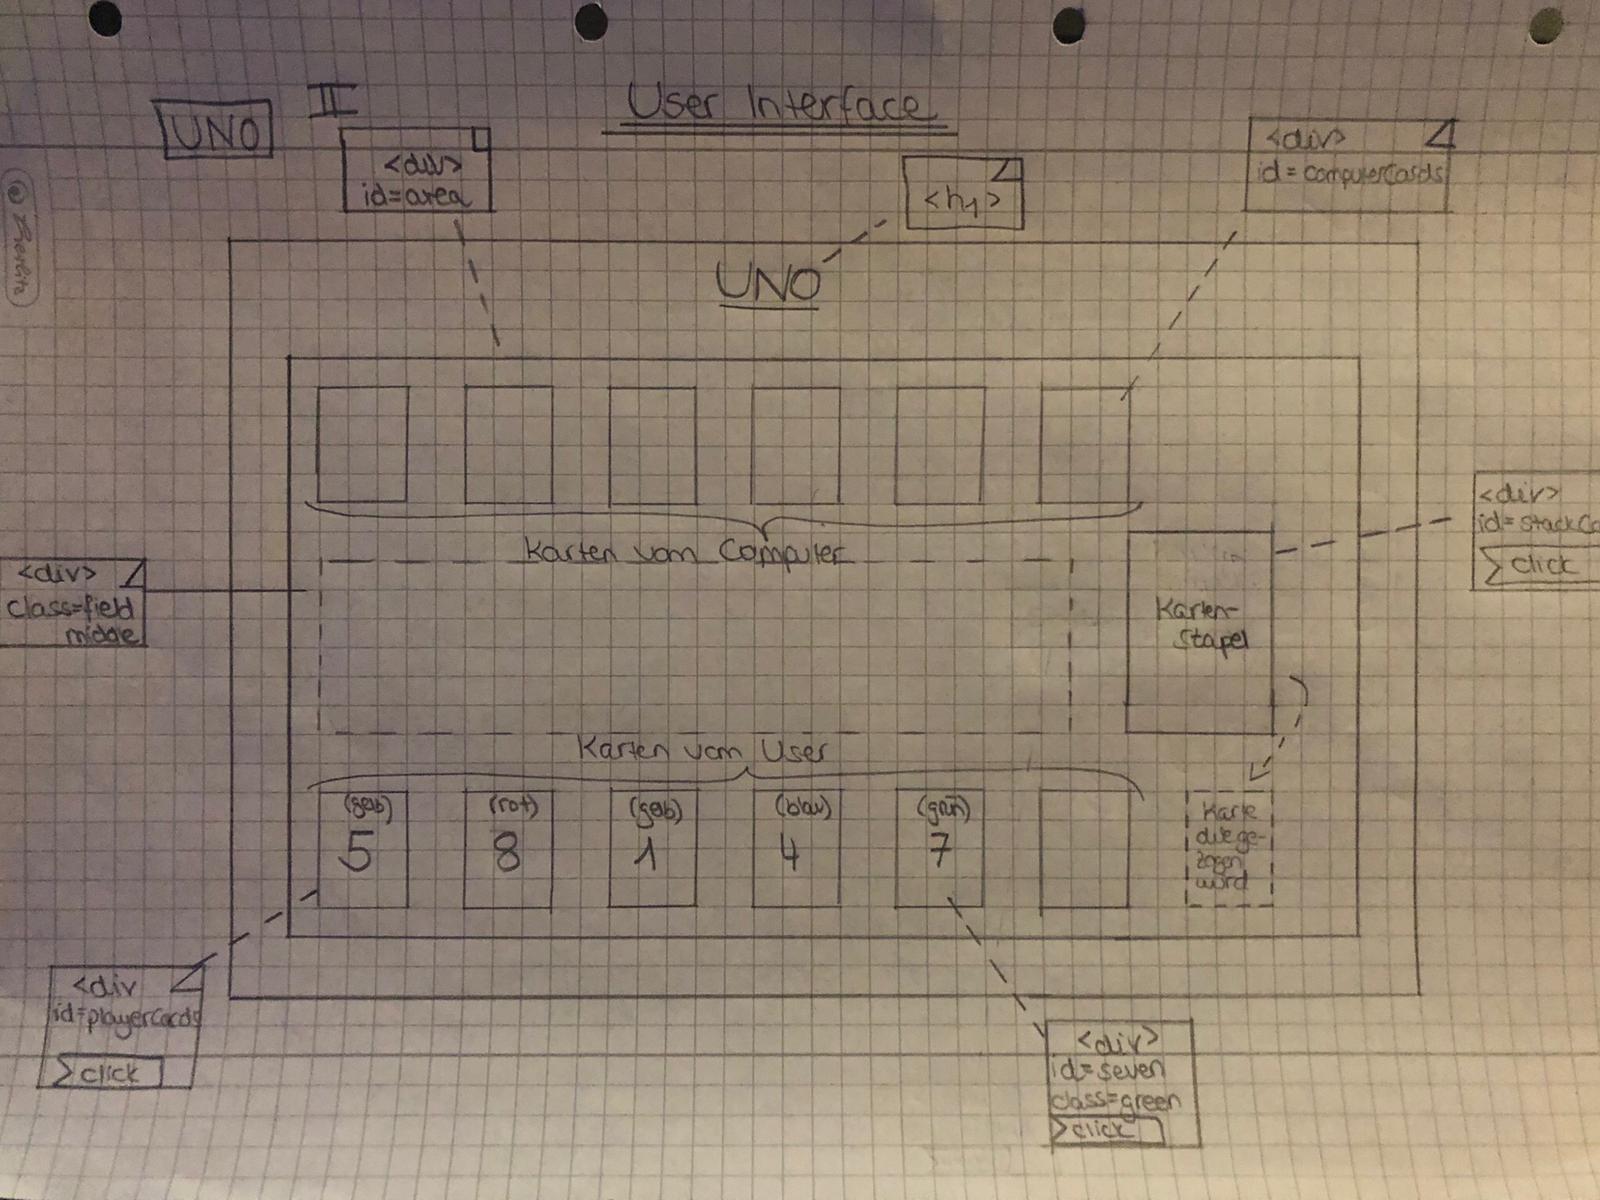 UNO
II
User Interface
<div>
id=area
<h1>
<div>
id=computerCards
UNO
Karten vom Computer
<div>
id=stackCa
click
<div>
class=field
middle
Karten-
Stapel
Karten vom User
(gelb)
5
(rot)
8
(gelb)
1
(blau)
4
(grün)
7
Karte
die ge-
zogen
wird
<div
id=playerCards
click
<div>
id=seven
class=green
click